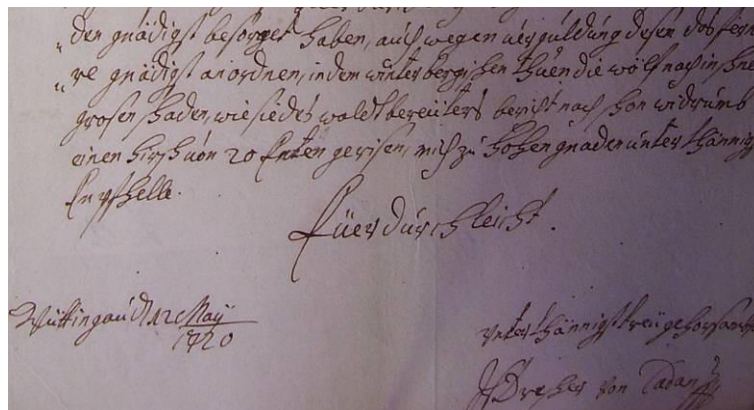 „ den gnädigst besorget haben, auch wegen vergüldung desen
„ re gnädigst anordnen, in dem winterbergischen thuen die wölf nach
grosen schaden, wie sie des waldt bereiters bericht nach schon widrumb
einen hirsch von 20 Enten gerisen, mich zu hohen gnaden unterthännigst
Empfhelle.
Euer Durchleicht.
Wittingau d 12 May
1720
unterthännigst treu gehorsambst
von